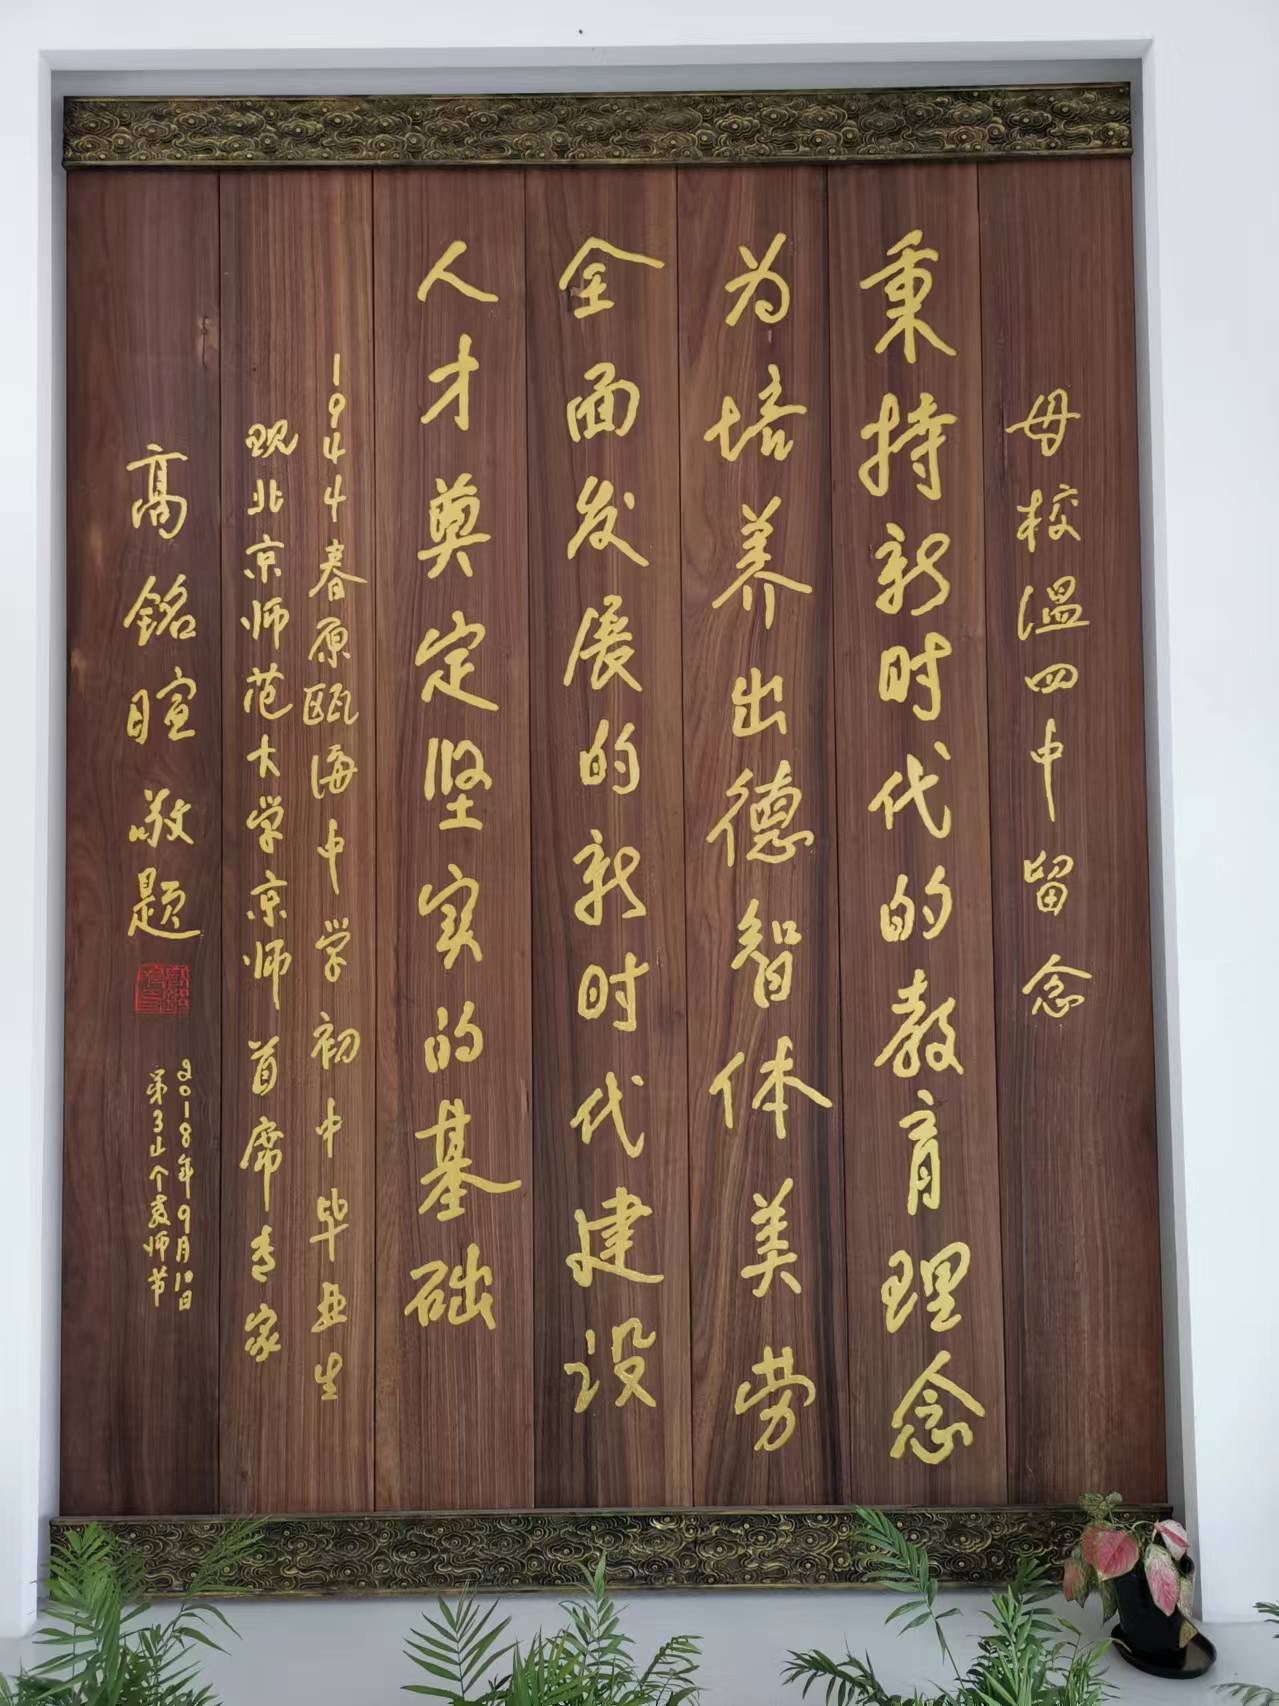 母校温四中留念
秉持新时代的教育理念
为培养出德智体美劳
全面发展的新时代建设
人才奠定坚实的基础
1944年春原瓯海中学初中毕业生
现北京师范大学京师首席专家
高铭暄敬题
2018年9月10日
第34个教师节